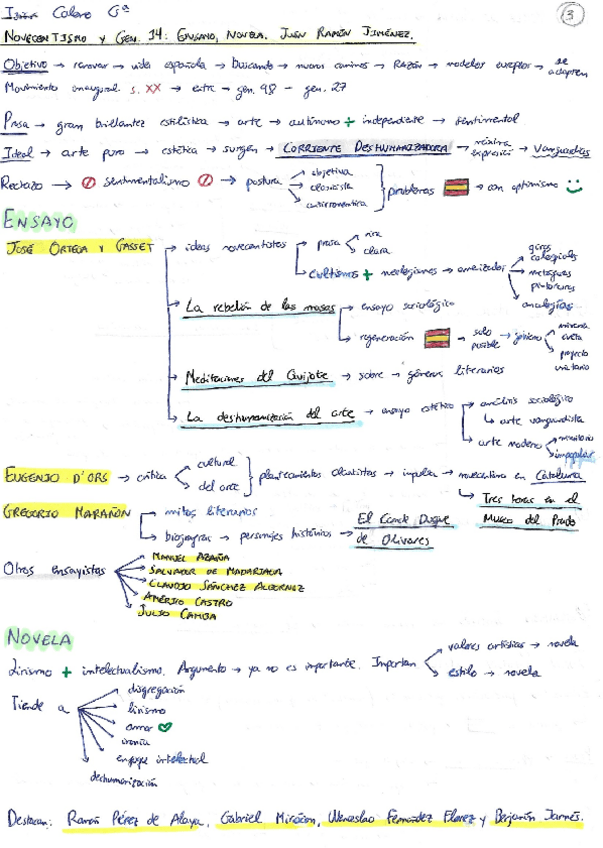 Calero Gª
3
NOVECENTISMO Y GEN. 14: ENSAYO, NOVELA. JUAN RAMÓN JIMÉNEZ.
Objetivo → renovar → vida española → buscando → nuevos caminos → Razón → modelos europeos → se adaptan
Movimiento inaugural s. XX → entre → gen. 98 – gen. 27
Prosa → gran brillantez estilística → arte → autónomo + independiente → sentimental
Ideal → arte puro → estética → surgen → CORRIENTE DESHUMANIZADORA → máxima expresión → Vanguardias
Rechazo → sentimentalismo → postura → objetiva
clasicista
antirromántica
problemas → con optimismo
ENSAYO
JOSÉ ORTEGA Y GASSET → ideas novecentistas → prosa → rica
clara
cultismos + neologismos → amenizados → giros coloquiales
metáforas pintorescas
analogías
La rebelión de las masas → ensayo sociológico
regeneración → solo posible → jóvenes → minoría culta
proyecto unitario
Meditaciones del Quijote → sobre → géneros literarios
La deshumanización del arte → ensayo estético → análisis sociológico
↳ arte vanguardista
arte moderno → minoritario
impopular
EUGENIO D'ORS → crítica → cultural
del arte
planteamientos clasicistas → impulsa → novecentismo en Cataluña
↳ Tres horas en el Museo del Prado
GREGORIO MARAÑÓN → mitos literarios
biografías → personajes históricos → El Conde Duque de Olivares
Otros ensayistas → MANUEL AZAÑA
SALVADOR DE MADARIAGA
CLAUDIO SÁNCHEZ ALBORNOZ
AMÉRICO CASTRO
JULIO CAMBA
NOVELA
Lirismo + intelectualismo. Argumento → ya no es importante. Importan → valores artísticos → novela
estilo → novela
Tiende a → disgregación
lirismo
amor
ironía
enfoque intelectual
deshumanización
Destacan: Ramón Pérez de Ayala, Gabriel Miró, Wenceslao Fernández Flórez y Benjamín Jarnés.